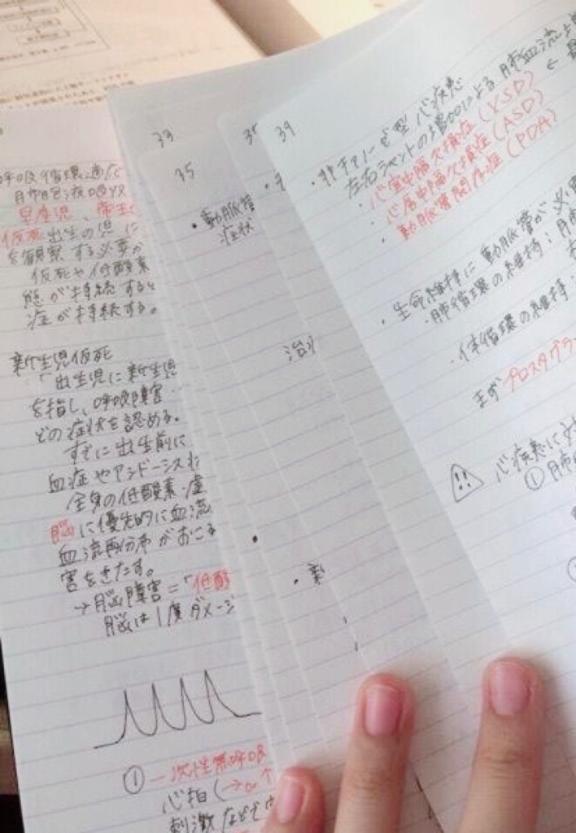 呼吸循環適応
肺胞液吸収
早産児、帝王
仮死出生の児に
を観察する必要が
仮死や低酸素
態が持続すると
症が持続する。
新生児仮死
「出生児に新生児
を指し、呼吸障害
どの症状を認める。
すでに出生前に
血症やアシドーシスむ
全身の低酸素・虚
脳に優先的に血流
血流再分布がおこる
害をきたす。
→脳障害=「低酸
脳は1度ダメージ
① 一次性無呼吸
心拍(→or↑
刺激などで
33
35
・動脈管
症状
治り
・新
39
・非チアノーゼ型心疾患
左右シャントの増加による肺血流上
・心室中隔欠損症(VSD)
・心房中隔欠損症(ASD)
・動脈管開存症(PDA)
・生命維持に動脈管が必
・肺循環の維持:
・体循環の維持:
まずプロスタグラ
心疾患に対
①肺